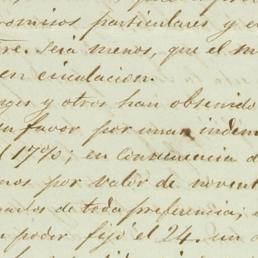 omisos particulares y e
tre. será menos, que el m
en circulacion.
gos y otros han obtenido
su favor, por una inde
17%; en consecuencia d
nos por valor de novent
ados de toda preferencia;
poder fijó el 24. un